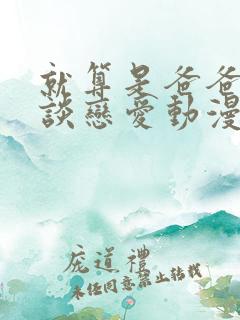 就算是爸爸
談戀愛動漫
庞道禮
未经同意禁止转载